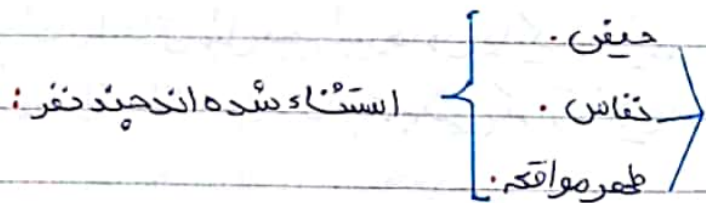 حیض.
نفاس.
طهر مواقعه.
استثناء شده اند چند نفر: